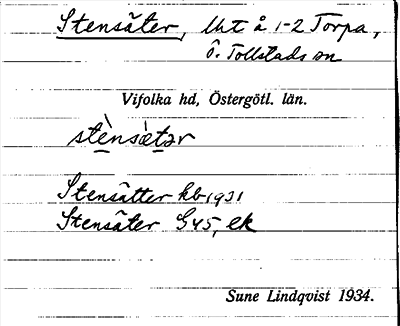 Stensäter, lht å 1-2 Torpa,
Ö. Tollstads sn
Vifolka hd, Östergötl. län.
stènsæ̀tər
Stensätter kb 1931
Stensäter G45, ek
Sune Lindqvist 1934.